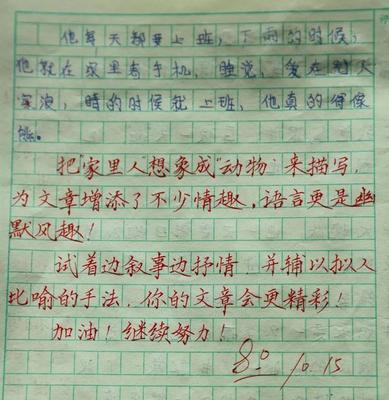 他每天都要上班，下雨的时候，
他就在家里看手机，睡觉，爱在别人
家浪，晴的时候就上班，他真的得像
熊。
把家里人想象成“动物”来描写，
为文章增添了不少情趣，语言更是幽
默风趣！
试着边叙事边抒情，并辅以拟人
比喻的手法，你的文章会更精彩！
加油！继续努力！
80 10.15